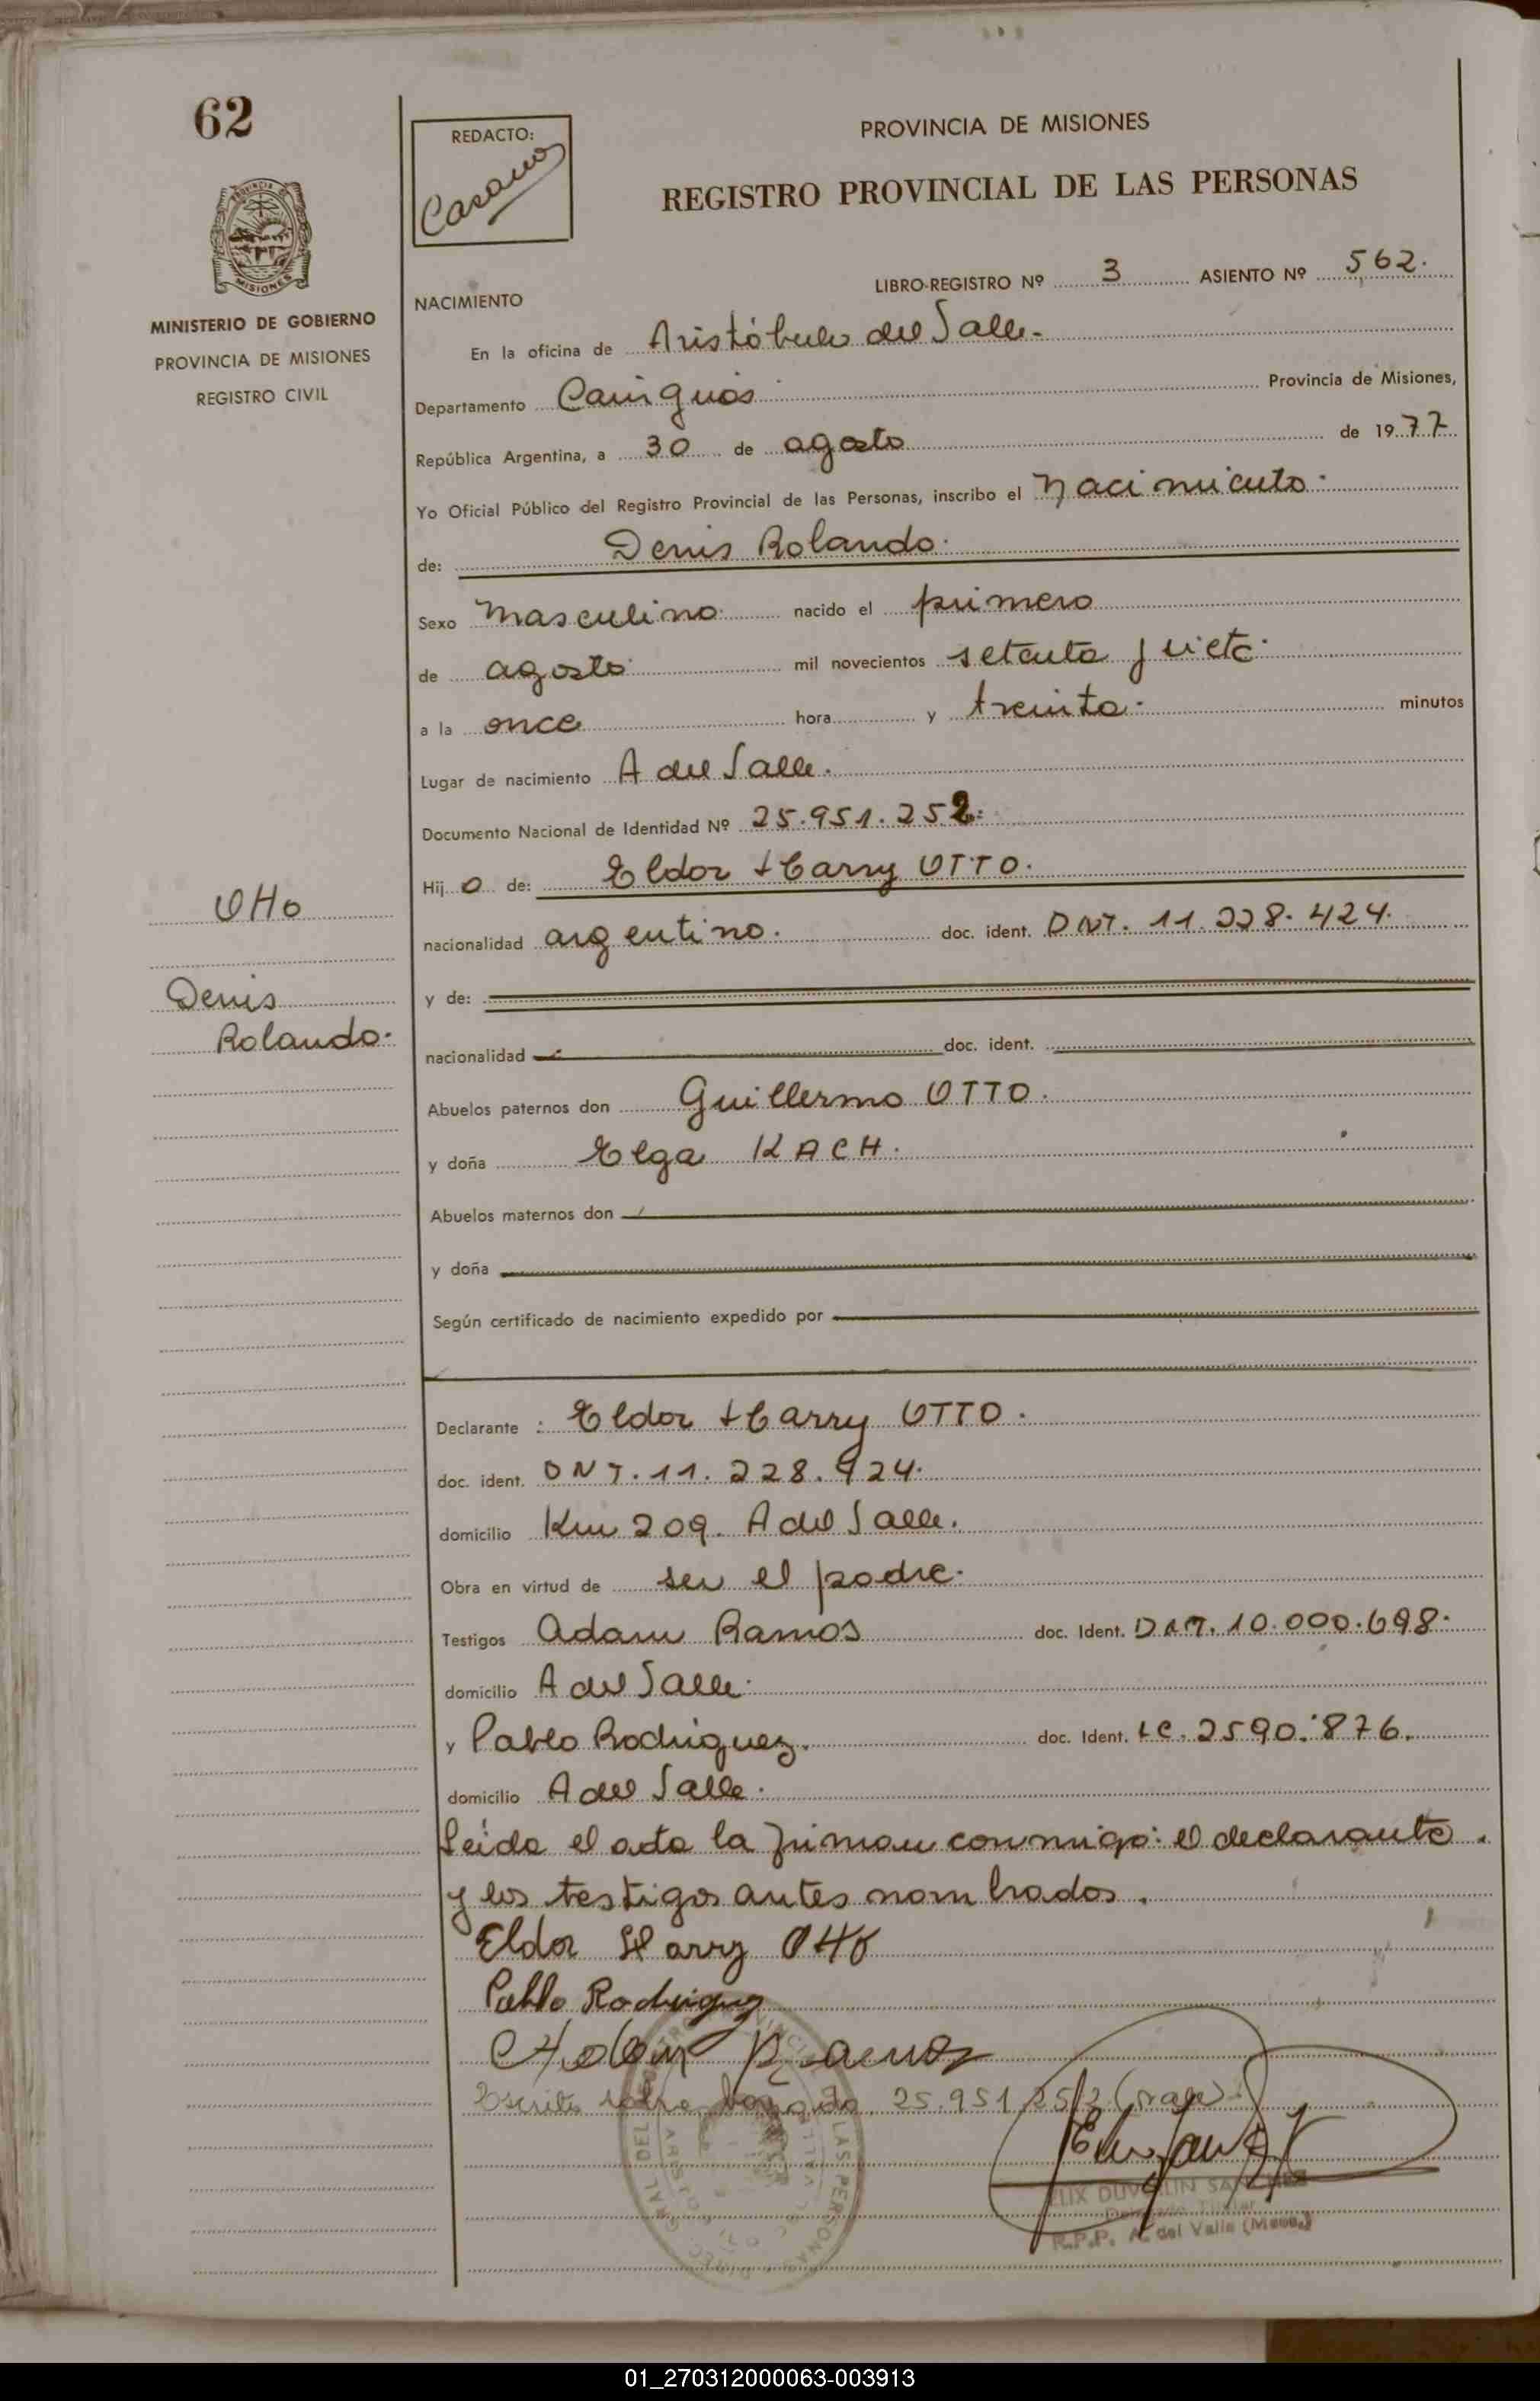 62
PROVINCIA DE
MISIONES
MINISTERIO DE GOBIERNO
PROVINCIA DE MISIONES
REGISTRO CIVIL
REDACTO:
PROVINCIA DE MISIONES
REGISTRO PROVINCIAL DE LAS PERSONAS
LIBRO-REGISTRO Nº 3 ASIENTO Nº 562.
NACIMIENTO
En la oficina de Aristóbulo del Valle.
Departamento Cainguás Provincia de Misiones,
República Argentina, a 30 de agosto de 1977
Yo Oficial Público del Registro Provincial de las Personas, inscribo el Nacimiento.
de: Denis Rolando.
Sexo masculino nacido el primero
de agosto mil novecientos setenta y siete.
a la once hora y treinta. minutos
Lugar de nacimiento A del Valle.
Documento Nacional de Identidad Nº 25.951.252.
Hijo de: Eldor Harry OTTO.
nacionalidad argentino. doc. ident. DNI. 11.228.424.
y de:
nacionalidad doc. ident.
Otto
Denis
Rolando.
Abuelos paternos don Guillermo OTTO.
y doña Elga KACH.
Abuelos maternos don
y doña
Según certificado de nacimiento expedido por
Declarante : Eldor Harry OTTO.
doc. ident. DNI. 11. 228. 424.
domicilio Km 209. A del Valle.
Obra en virtud de ser el padre.
Testigos Adam Ramos doc. Ident. DNI. 10.000.698.
domicilio A del Valle.
y Pablo Rodriguez. doc. Ident. LE. 2590.876.
domicilio A del Valle.
Leida el acta la firman conmigo: el declarante
y los testigos antes nombrados.
Eldor Harry Otto
Pablo Rodriguez
Ramos
Escrito sobre borrado 25.951.252 (vale).
R.P.P. A. del Valle (Mnes.)
01_270312000063-003913